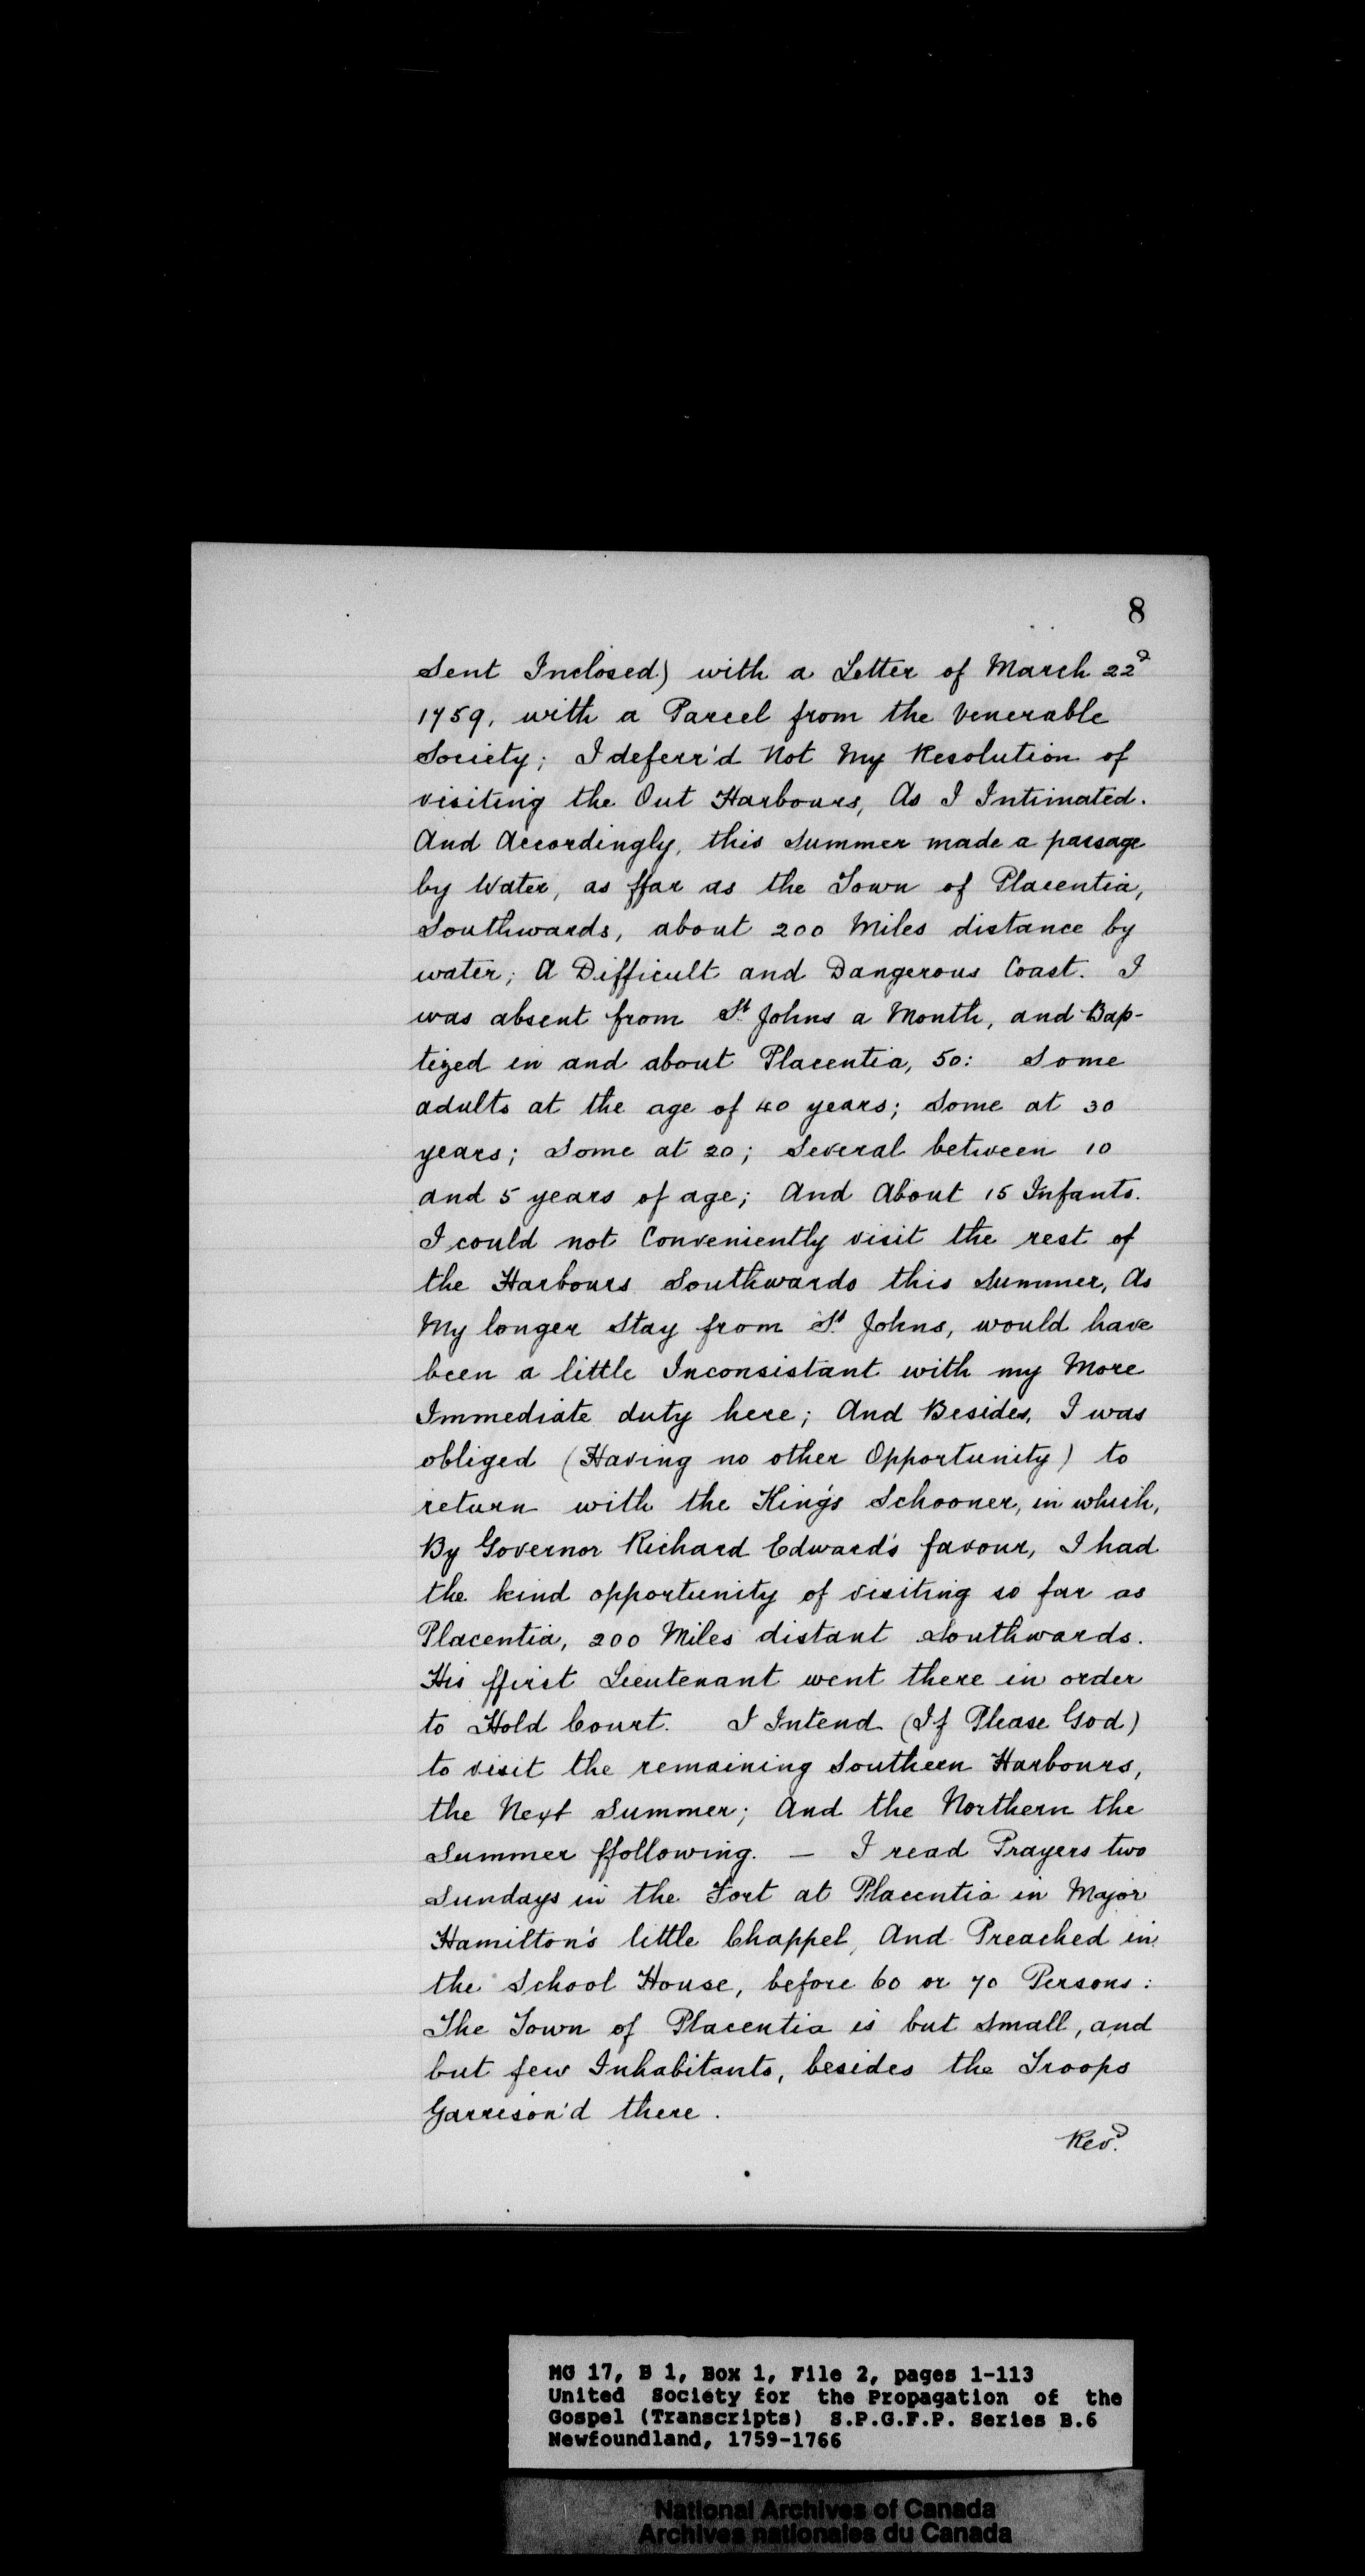 8
Sent Inclosed) with a Letter of March 22d
1759, with a Parcel from the Venerable
Society; I deferr'd Not My Resolution of
visiting the Out Harbours, As I Intimated.
And Accordingly, this Summer made a passage
by Water, as ffar as the Town of Placentia,
Southwards, about 200 Miles distance by
water; A Difficult and Dangerous Coast. I
was absent from St. Johns a Month, and Bap-
tized in and about Placentia, 50: Some
adults at the age of 40 years; Some at 30
years; Some at 20; Several between 10
and 5 years of age; And About 15 Infants.
I could not Conveniently visit the rest of
the Harbours Southwards this Summer, As
My longer Stay from St. Johns, would have
been a little Inconsistant with my More
Immediate duty here; And Besides, I was
obliged (Having no other Opportunity) to
return with the King's Schooner, in which,
By Governor Richard Edward's favour, I had
the kind opportunity of visiting so far as
Placentia, 200 Miles distant Southwards.
His ffirst Lieutenant went there in order
to Hold Court. I Intend (If Please God)
to visit the remaining Southern Harbours,
the Next Summer; And the Northern the
Summer ffollowing. — I read Prayers two
Sundays in the Fort at Placentia in Major
Hamilton's little Chappel, And Preached in
the School House, before 60 or 70 Persons:
The Town of Placentia is but Small, and
but few Inhabitants, besides the Troops
Garrison'd there.
Revd.
MG 17, B 1, Box 1, File 2, pages 1-113
United Society for the Propagation of the
Gospel (Transcripts) S.P.G.F.P. Series B.6
Newfoundland, 1759-1766
National Archives of Canada
Archives nationales du Canada